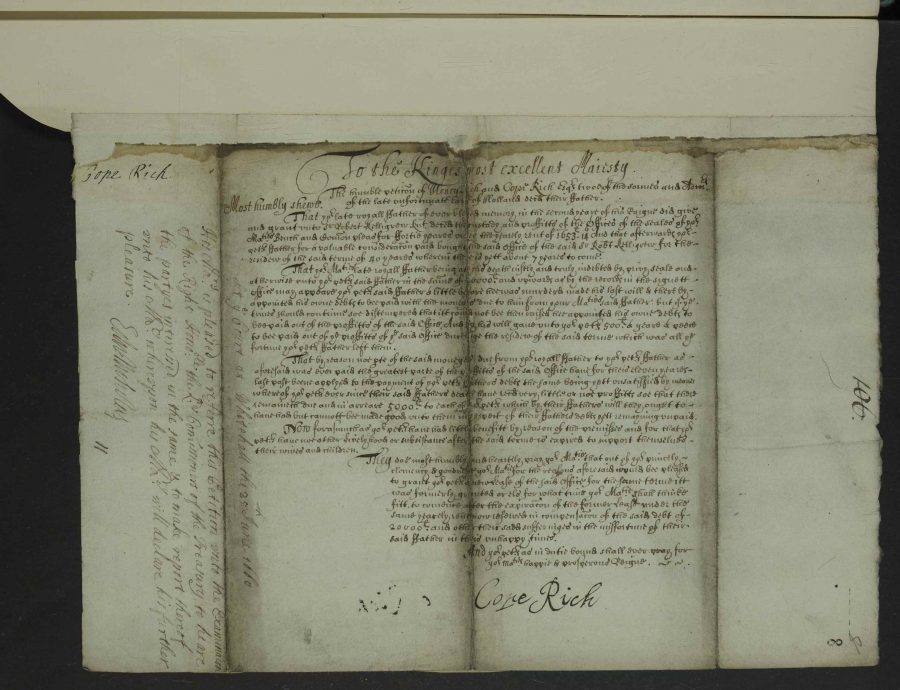 Cope Rich
To the Kinges most excellent Maiesty
The humble petition of Henry Rich and Cope Rich Esqrs two of the sonnes and
of the late unfortunate Earle of Holland decd their ffather.
Most humbly sheweth
That yor late royall ffather of ever blessed memory, in the second yeare of his Raigne did give
and grant unto Sr Robert Killigrew Knt, decd the custody and proffitts of the Offices of the seales of yor
Maties Bench and Comon pleas for ffortie yeares under the yearely rent of and that afterwards yor
petrs ffather for a valuable consideracon paid bought the said Office of the said Sr Robt Killigrew for the
residew of the said terme of 40 yeares wherein there is yett about 7 yeares to come.
That yor Maties late royall ffather being att his death iustly and truly indebted by privy seale and
otherwise unto yor petrs said ffather in the summe of and upwards as by the records in the signett
Office may appeare yor petrs said ffather a little before hee was murdered made his last will & thereby
appointed his owne debts to bee paid with the moneyes due to him from your Maties said ffather. but if ye
times should continue soe distempered that itt could not bee then hee appointed his owne debts to
bee paid out of the proffitts of the said Office, And by his will gave unto yor petrs 500li a yeare a peece
to bee paid out of ye proffitts of ye said Office during the residew of the said terme which was all ye
fortune yor petrs ffather left them.
That by reason noe pte of the said moneyes due from yor royall ffather to yor petrs ffather as
aforesaid was ever paid the greatest parte of the proffitts of the said Office have for these eleven yeares
last past been applyed to the payment of yor petrs ffathers debts the same being yett unsatisfied by meanes
whereof yor petrs ever since their said ffathers death have recd very little or noe proffitts soe that there
remaineth due and in arreare 5000li to each of yor petrs which by their ffathers will they ought to
have had but cannott bee made good unto them in respect of their ffathers debts yett remayning unpaid.
Now forasmuch as yor petrs have had little benefitt by reason of the premisses and for that yor
petrs have not other livelyhood or subsistance after the said terme is expired to support themselves
their wives and children.
They doe most humbly and heartily pray yor Matie that out of yor princely
clemency & goodnes yor Matie for the reasons aforesaid would bee pleased
to grant yor petrs a new lease of the said Office for the same terme itt
was formerly granted or els for what time yor Matie shall thinke
fitt, to comence after the expiracon of the former lease under the
same yearely rent now reserved in compensacon of the said debt of
20000li and other their said sufferings in the misfortune of their
said ffather in these unhappy times.
And yor petrs as in dutie bound shall ever pray for
yor Maties happie & prosperous Raigne.
Cope Rich
att the Court at Whitehall the 20th June 1660
His Matie is pleased to referre this Petition unto the Examinacon
of the Right honble the Lords Commrs of the Treasury to heare
the partyes greived in the same, & to make report thereof
unto his Matie whereupon his Matie will declare his further
pleasure.
11
106
8